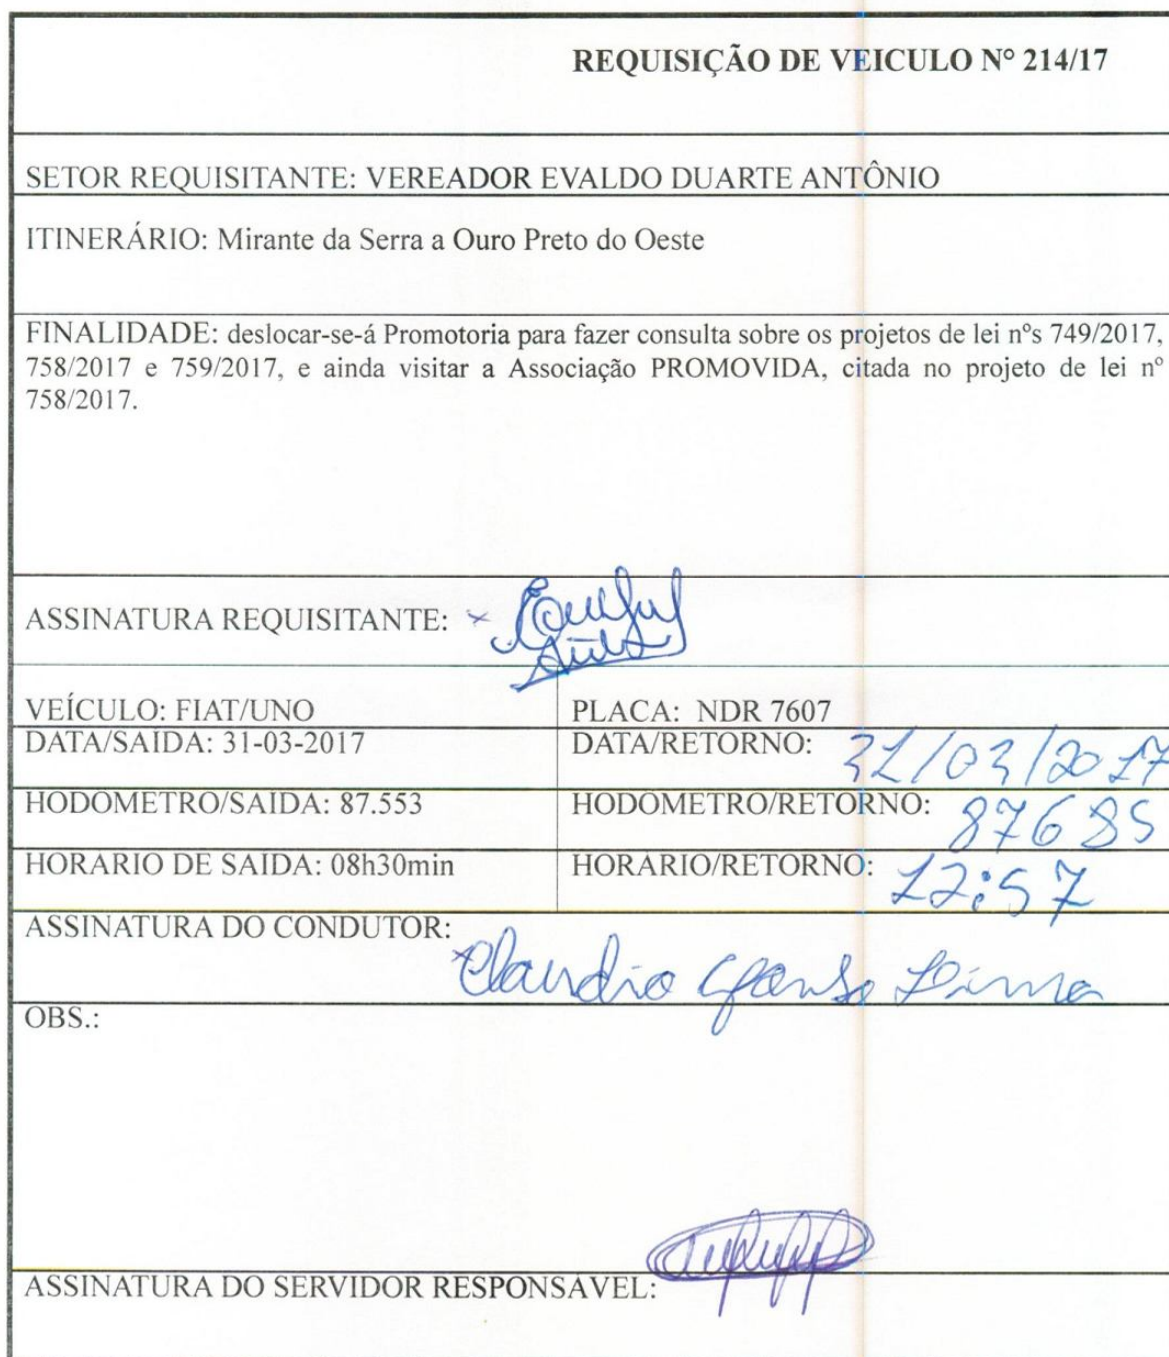 REQUISIÇÃO DE VEICULO Nº 214/17
SETOR REQUISITANTE: VEREADOR EVALDO DUARTE ANTÔNIO
ITINERÁRIO: Mirante da Serra a Ouro Preto do Oeste
FINALIDADE: deslocar-se-á Promotoria para fazer consulta sobre os projetos de lei nºs 749/2017,
758/2017 e 759/2017, e ainda visitar a Associação PROMOVIDA, citada no projeto de lei nº
758/2017.
ASSINATURA REQUISITANTE: ×
VEÍCULO: FIAT/UNO PLACA: NDR 7607
DATA/SAÍDA: 31-03-2017 DATA/RETORNO: 31/03/2017
HODOMETRO/SAIDA: 87.553 HODOMETRO/RETORNO: 87685
HORARIO DE SAIDA: 08h30min HORARIO/RETORNO: 12:57
ASSINATURA DO CONDUTOR:
× Claudio Lima
OBS.:
ASSINATURA DO SERVIDOR RESPONSÁVEL: